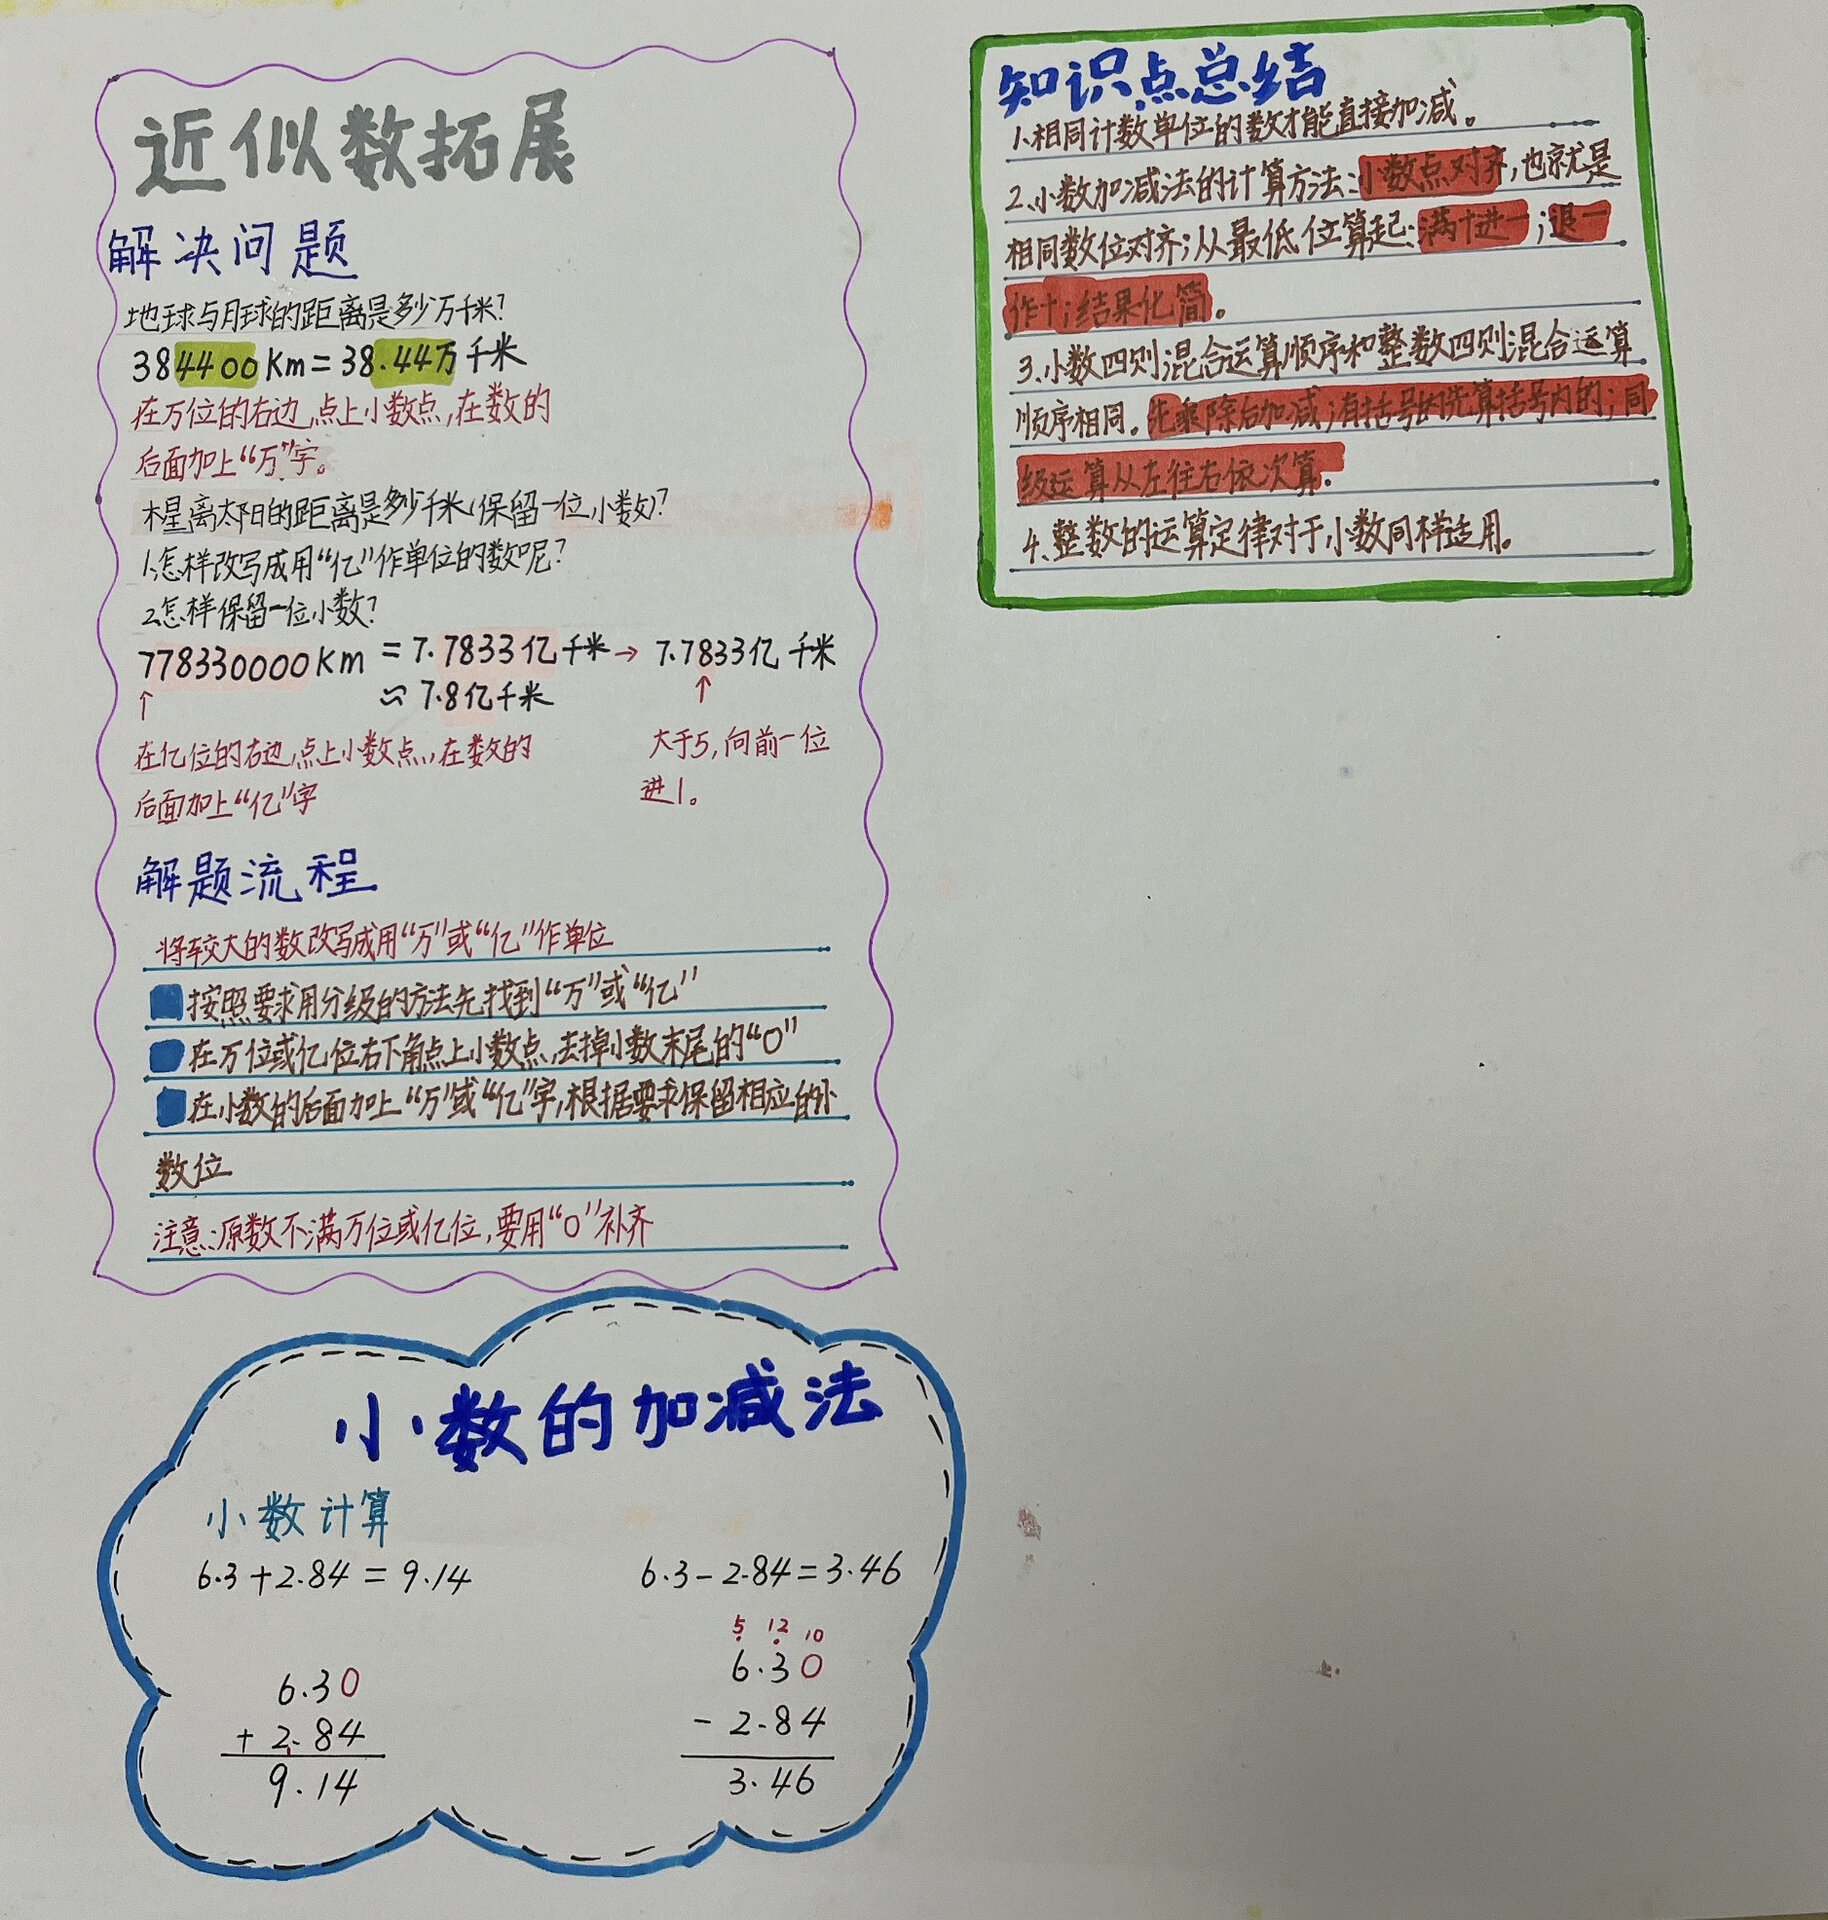 近似数拓展
解决问题
地球与月球的距离是多少万千米?
384400Km=38.44万千米
在万位的右边,点上小数点,在数的
后面加上“万”字。
木星离太阳的距离是多少千米(保留一位小数)?
1.怎样改写成用“亿”作单位的数呢?
2.怎样保留一位小数?
778330000Km =7.7833亿千米→ 7.7833亿千米
↑ ≈7.8亿千米 ↑
在亿位的右边,点上小数点,在数的
后面加上“亿”字
大于5,向前一位
进1。
解题流程
将较大的数改写成用“万”或“亿”作单位
按照要求用分级的方法先找到“万”或“亿”
在万位或亿位右下角点上小数点,去掉小数末尾的“0”
在小数的后面加上“万”或“亿”字,根据要求保留相应的小
数位
注意:原数不满万位或亿位,要用“0”补齐
知识点总结
1.相同计数单位的数才能直接加减。
2.小数加减法的计算方法:小数点对齐,也就是
相同数位对齐;从最低位算起;满十进一;退一
作十;结果化简。
3.小数四则混合运算顺序和整数四则混合运算
顺序相同。先乘除后加减;有括号的先算括号内的;同
级运算从左往右依次算.
4.整数的运算定律对于小数同样适用。
小数的加减法
小数计算
6.3+2.84=9.14
6.30
+2.84
9.14
6.3-2.84=3.46
5 12 10
6.30
-2.84
3.46